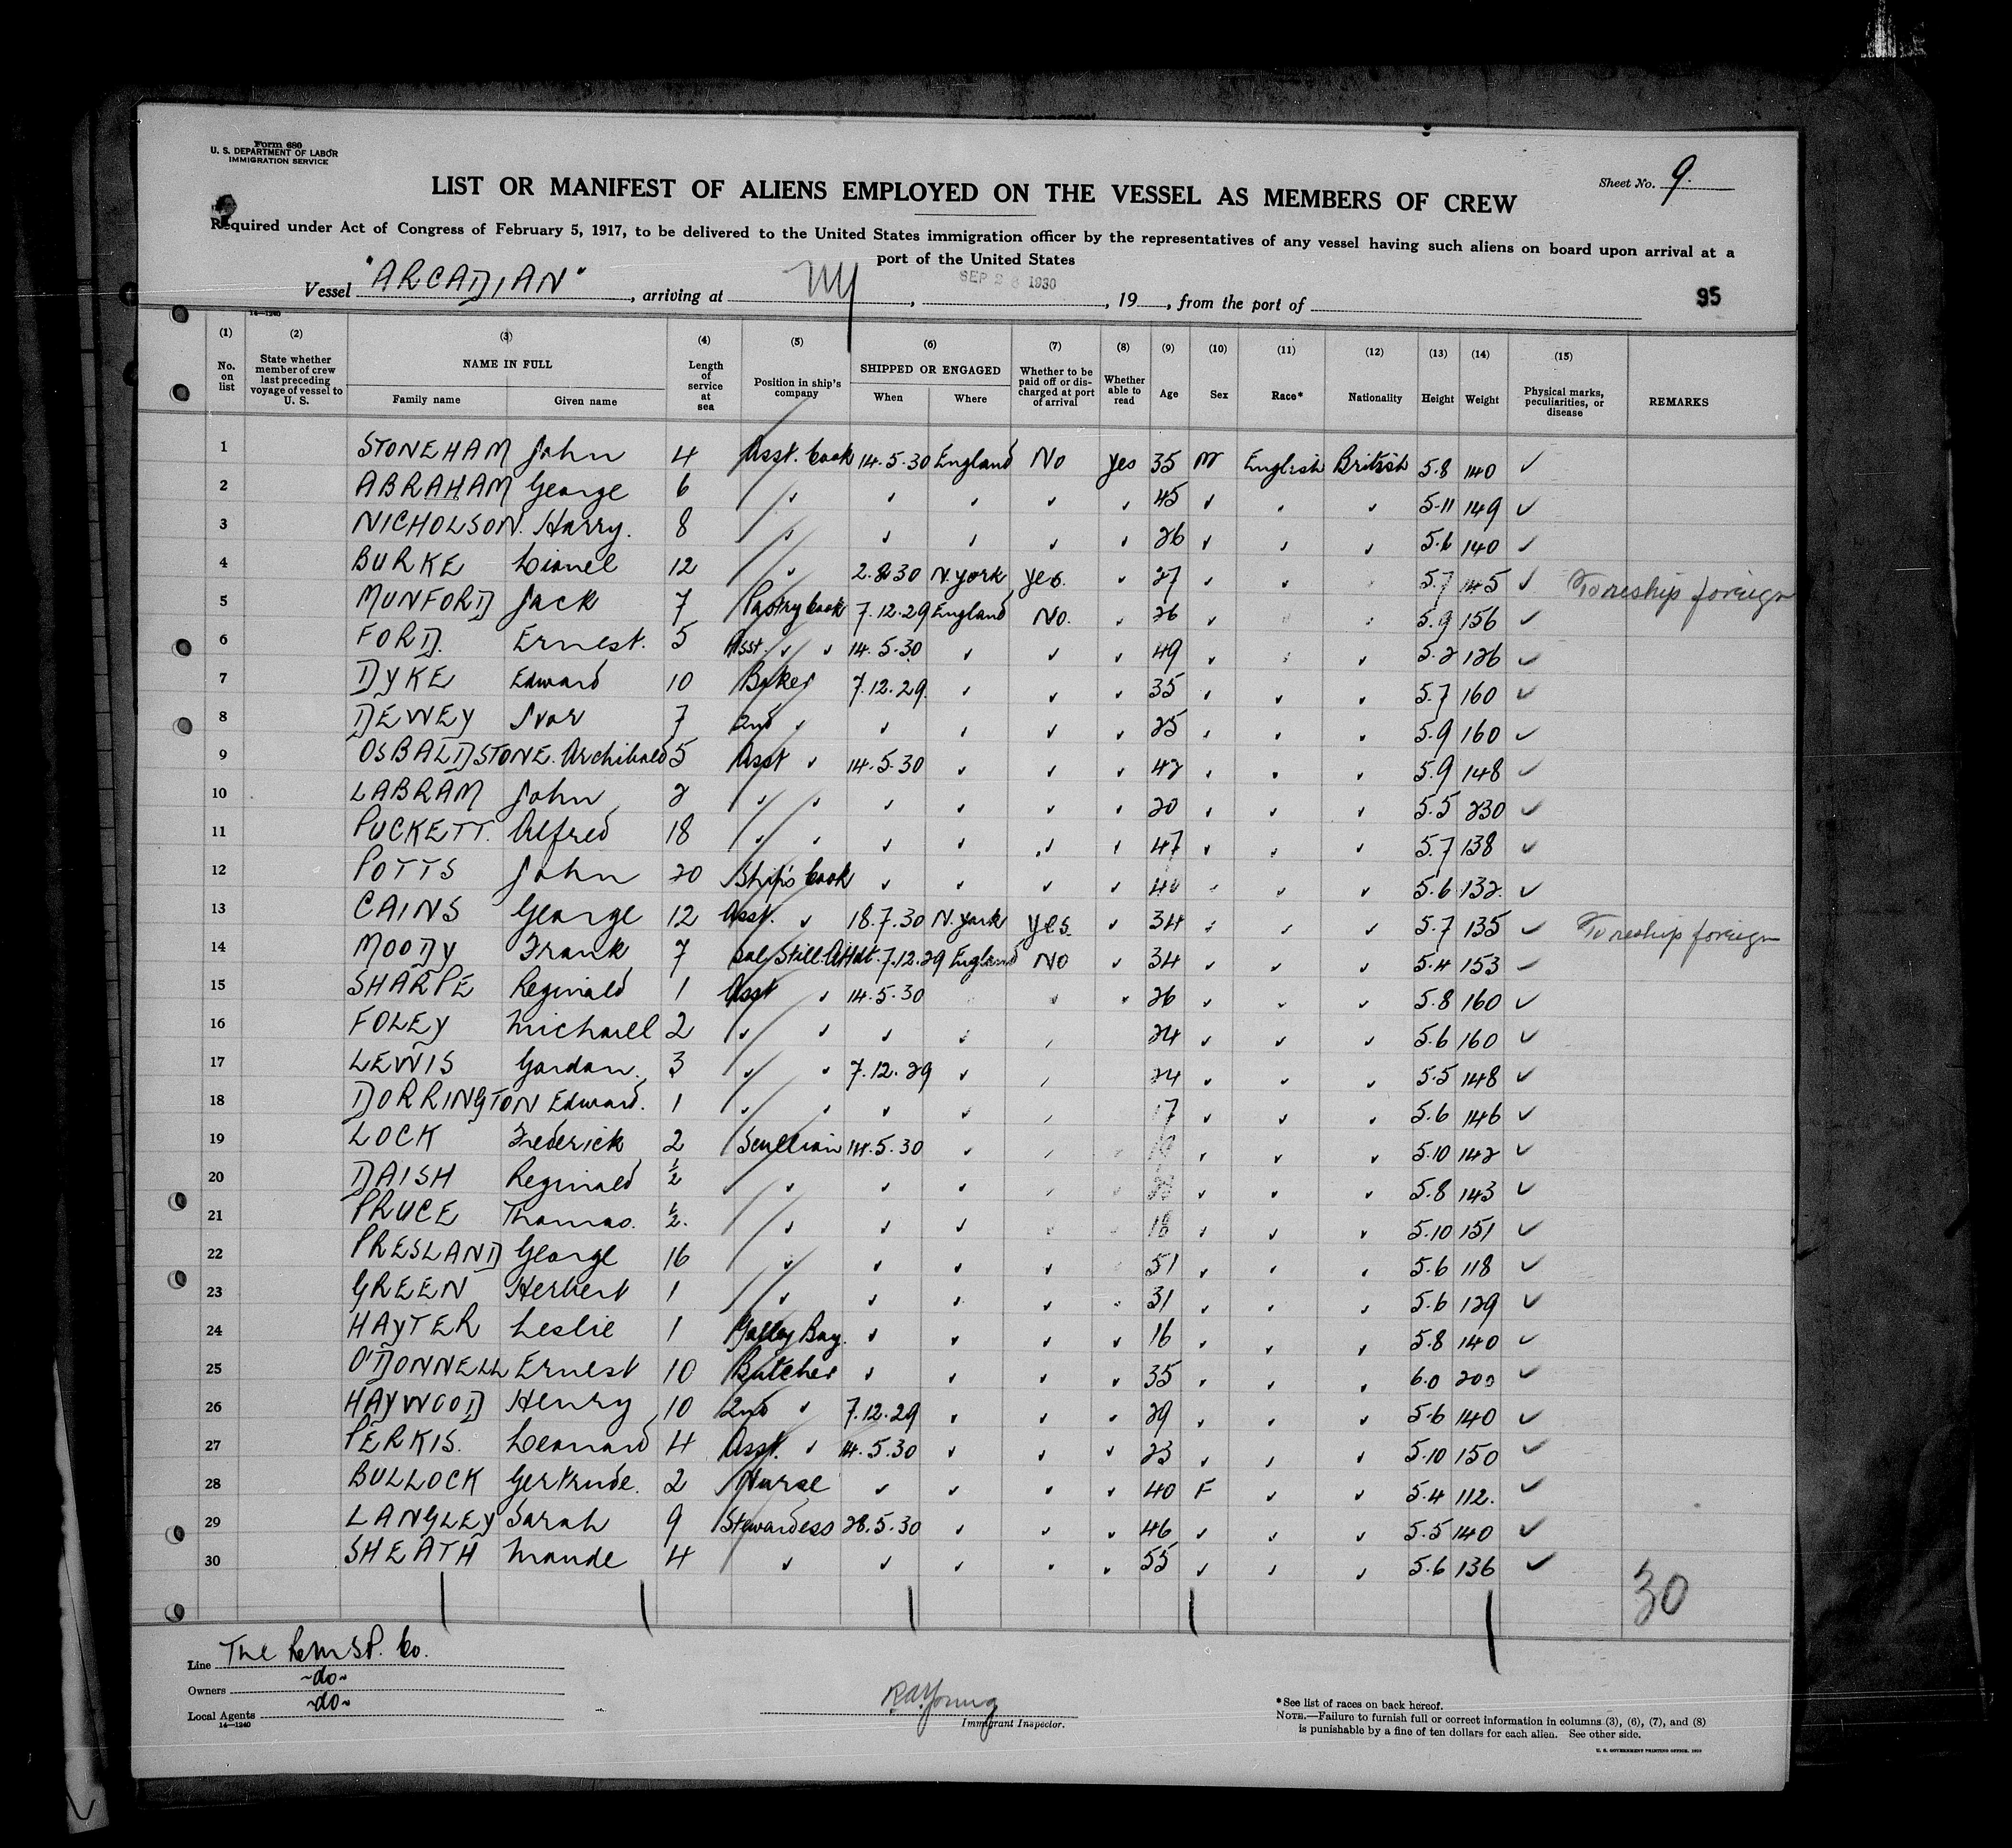 Form 680
U. S. DEPARTMENT OF LABOR
IMMIGRATION SERVICE
Sheet No. 9.
LIST OR MANIFEST OF ALIENS EMPLOYED ON THE VESSEL AS MEMBERS OF CREW
Required under Act of Congress of February 5, 1917, to be delivered to the United States immigration officer by the representatives of any vessel having such aliens on board upon arrival at a
port of the United States
Vessel "ARCADIAN", arriving at NY, SEP 1930, 19, from the port of
95
14—1240
(1) (2) (3) (4) (5) (6) (7) (8) (9) (10) (11) (12) (13) (14) (15)
No. on list State whether member of crew last preceding voyage of vessel to U. S. NAME IN FULL Family name Given name Length of service at sea Position in ship's company SHIPPED OR ENGAGED When Where Whether to be paid off or discharged at port of arrival Whether able to read Age Sex Race* Nationality Height Weight Physical marks, peculiarities, or disease REMARKS
1 STONEHAM John 4 Asst. Cook 14.5.30 England No yes 35 M English British 5.8 140 ✓
2 ABRAHAM George 6 ✓ ✓ ✓ ✓ ✓ 45 ✓ ✓ ✓ 5.11 149 ✓
3 NICHOLSON. Harry. 8 ✓ ✓ ✓ ✓ ✓ 26 ✓ ✓ ✓ 5.6 140 ✓
4 BURKE Lionel 12 ✓ 2.8.30 N. york yes. ✓ 27 ✓ ✓ 5.7 145 ✓ To reship foreign
5 MUNFORD Jack 7 Pastry Cook 7.12.29 England No. ✓ 26 ✓ ✓ ✓ 5.9 156 ✓
6 FORD. Ernest. 5 Asst. ✓ ✓ 14.5.30 ✓ ✓ ✓ 49 ✓ ✓ ✓ 5.2 126 ✓
7 DYKE Edward 10 Baker 7.12.29. ✓ ✓ ✓ 35 ✓ ✓ ✓ 5.7 160 ✓
8 DEWEY Ivor 7 2nd ✓ ✓ ✓ ✓ ✓ 25 ✓ ✓ ✓ 5.9 160 ✓
9 OSBALDSTONE. Archibald 5 Asst ✓ 14.5.30 ✓ ✓ ✓ 42 ✓ ✓ ✓ 5.9 148 ✓
10 LABRAM John 2 ✓ ✓ ✓ ✓ ✓ ✓ 20 ✓ ✓ ✓ 5.5 230 ✓
11 PUCKETT. Alfred 18 ✓ ✓ ✓ ✓ ✓ ✓ 47 ✓ ✓ ✓ 5.7 138 ✓
12 POTTS John 20 Ship's Cook ✓ ✓ ✓ ✓ ✓ ✓ ✓ 5.6 132. ✓
13 CAINS George 12 Asst. ✓ 18.7.30 N. york yes. ✓ 34 ✓ ✓ ✓ 5.7 135 ✓ To reship foreign
14 MOODY Frank 7 Still. Attdt. 7.12.29 England No ✓ 34 ✓ ✓ ✓ 5.4 153 ✓
15 SHARPE Reginald 1 Asst ✓ 14.5.30 ✓ ✓ 26 ✓ ✓ ✓ 5.8 160 ✓
16 FOLEY Michael 2 ✓ ✓ ✓ ✓ ✓ 24 ✓ ✓ ✓ 5.6 160 ✓
17 LEWIS Gordon. 3 ✓ ✓ 7.12.29 ✓ ✓ 24 ✓ ✓ ✓ 5.5 148 ✓
18 DORRINGTON Edward. 1 ✓ ✓ ✓ ✓ ✓ 17 ✓ ✓ ✓ 5.6 146 ✓
19 LOCK Frederick 2 Scullion 14.5.30 ✓ ✓ ✓ ✓ ✓ 5.10 142 ✓
20 DAISH Reginald ½ ✓ ✓ ✓ ✓ ✓ ✓ ✓ 5.8 143 ✓
21 PRUCE Thomas. ½. ✓ ✓ ✓ ✓ 18 ✓ ✓ ✓ 5.10 151 ✓
22 PRESLAND George 16 ✓ ✓ ✓ ✓ 51 ✓ ✓ ✓ 5.6 118 ✓
23 GREEN Herbert 1 ✓ ✓ ✓ ✓ ✓ 31 ✓ ✓ ✓ 5.6 129 ✓
24 HAYTER Leslie 1 Galley Boy. ✓ ✓ ✓ ✓ 16 ✓ ✓ ✓ 5.8 140 ✓
25 O'DONNELL Ernest 10 Butcher ✓ ✓ ✓ ✓ 35 ✓ ✓ ✓ 6.0 200 ✓
26 HAYWOOD Henry 10 2nd ✓ 7.12.29 ✓ ✓ ✓ 29 ✓ ✓ ✓ 5.6 140 ✓
27 PERKIS. Leonard 4 Asst. ✓ 14.5.30 ✓ ✓ ✓ 23 ✓ ✓ ✓ 5.10 150 ✓
28 BULLOCK Gertrude. 2 Nurse ✓ ✓ ✓ ✓ 40 F ✓ ✓ 5.4 112. ✓
29 LANGLEY Sarah 9 Stewardess 28.5.30 ✓ ✓ ✓ 46 ✓ ✓ ✓ 5.5 140 ✓
30 SHEATH Maude 4 ✓ ✓ ✓ ✓ ✓ 55 ✓ ✓ ✓ 5.6 136 ✓
30
Line The R.M.S.P. Co.
Owners ~do~
Local Agents ~do~
14—1240
R.A. Young
Immigrant Inspector.
*See list of races on back hereof.
NOTE.—Failure to furnish full or correct information in columns (3), (6), (7), and (8)
is punishable by a fine of ten dollars for each alien. See other side.
U. S. GOVERNMENT PRINTING OFFICE